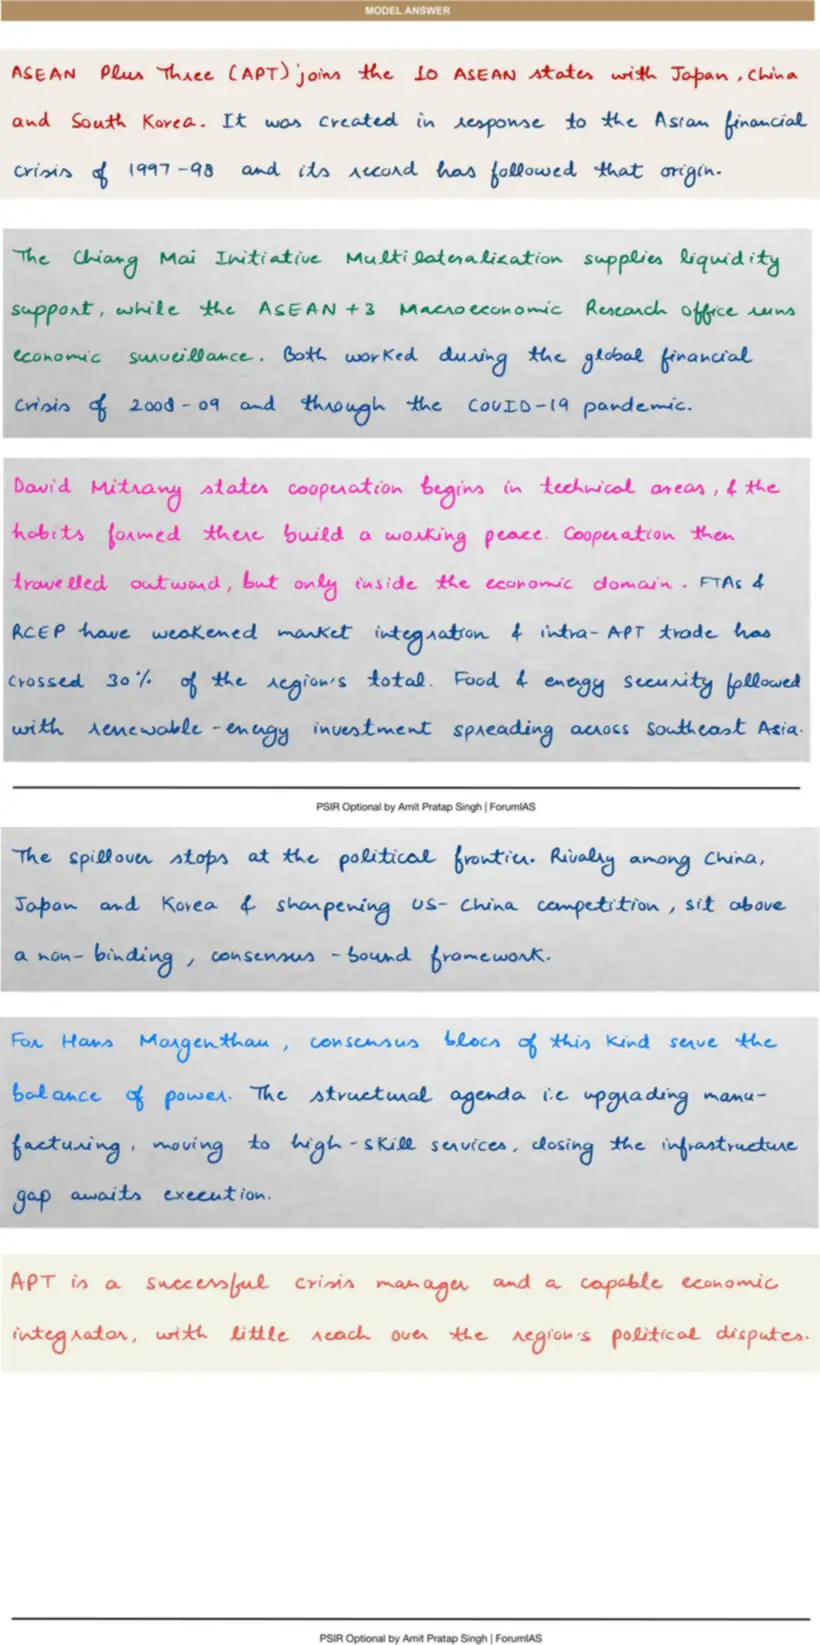 MODEL ANSWER
ASEAN Plus Three (APT) joins the 10 ASEAN states with Japan, China
and South Korea. It was created in response to the Asian financial
crisis of 1997-98 and its record has followed that origin.
The Chiang Mai Initiative Multilateralization supplies liquidity
support, while the ASEAN+3 Macroeconomic Research office runs
economic surveillance. Both worked during the global financial
crisis of 2008-09 and through the COVID-19 pandemic.
David Mitrany states cooperation begins in technical areas, & the
habits formed there build a working peace. Cooperation then
travelled outward, but only inside the economic domain. FTAs &
RCEP have weakened market integration & intra-APT trade has
crossed 30% of the region's total. Food & energy security followed
with renewable-energy investment spreading across Southeast Asia.
PSIR Optional by Amit Pratap Singh | ForumIAS
The spillover stops at the political frontier. Rivalry among China,
Japan and Korea & sharpening US-China competition, sit above
a non-binding, consensus-bound framework.
For Hans Morgenthau, consensus blocs of this kind serve the
balance of power. The structural agenda i.e upgrading manu-
facturing, moving to high-skill services, closing the infrastructure
gap awaits execution.
APT is a successful crisis manager and a capable economic
integrator, with little reach over the region's political disputes.
PSIR Optional by Amit Pratap Singh | ForumIAS